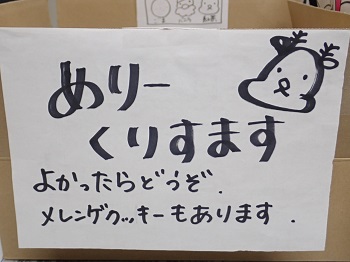 めりー
くりすます
よかったらどうぞ.
メレンゲクッキーもあります.